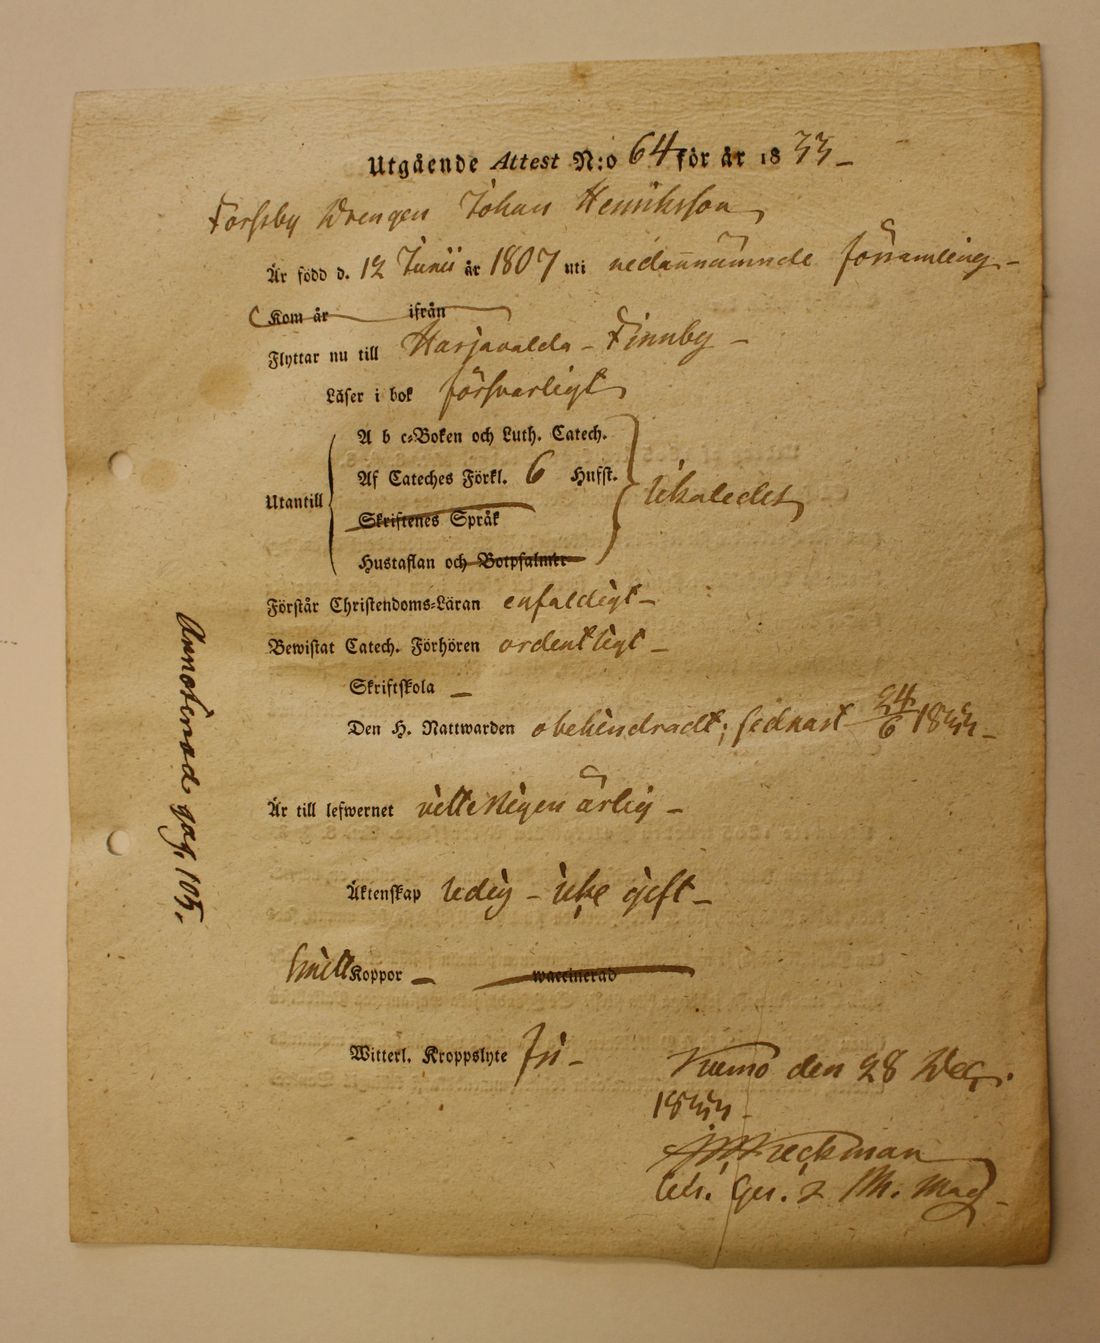 Utgående Attest N:o 64 för år 1833 –
Forsby Drengen Johan Henriksson
Är född d. 12 Junii år 1807 uti nedannämnde församling –
Kom år ifrån
Flyttar nu till Harjavalda – Finnby –
Läser i bok försvarligt
A b c-Boken och Luth. Catech.
Af Cateches Förkl. 6 Hufst.
Utantill
likaledes
Skriftenes Språk
Hustaflan och Botpsalmer
Förstår Christendoms-Läran enfaldigt –
Bewistat Catech. Förhören ordentligt –
Skriftskola –
Den H. Nattwarden obehindradt; sednast 24/6 1833 –
Är till lefwernet vitterligen ärlig –
Äktenskap ledig – icke gift –
haft Koppor – waccinerad
Witterl. Kroppslyte fri –
Kumo den 28 Dec.
1833 –
Adj. & M. Mag –
Annoterad pag. 105.